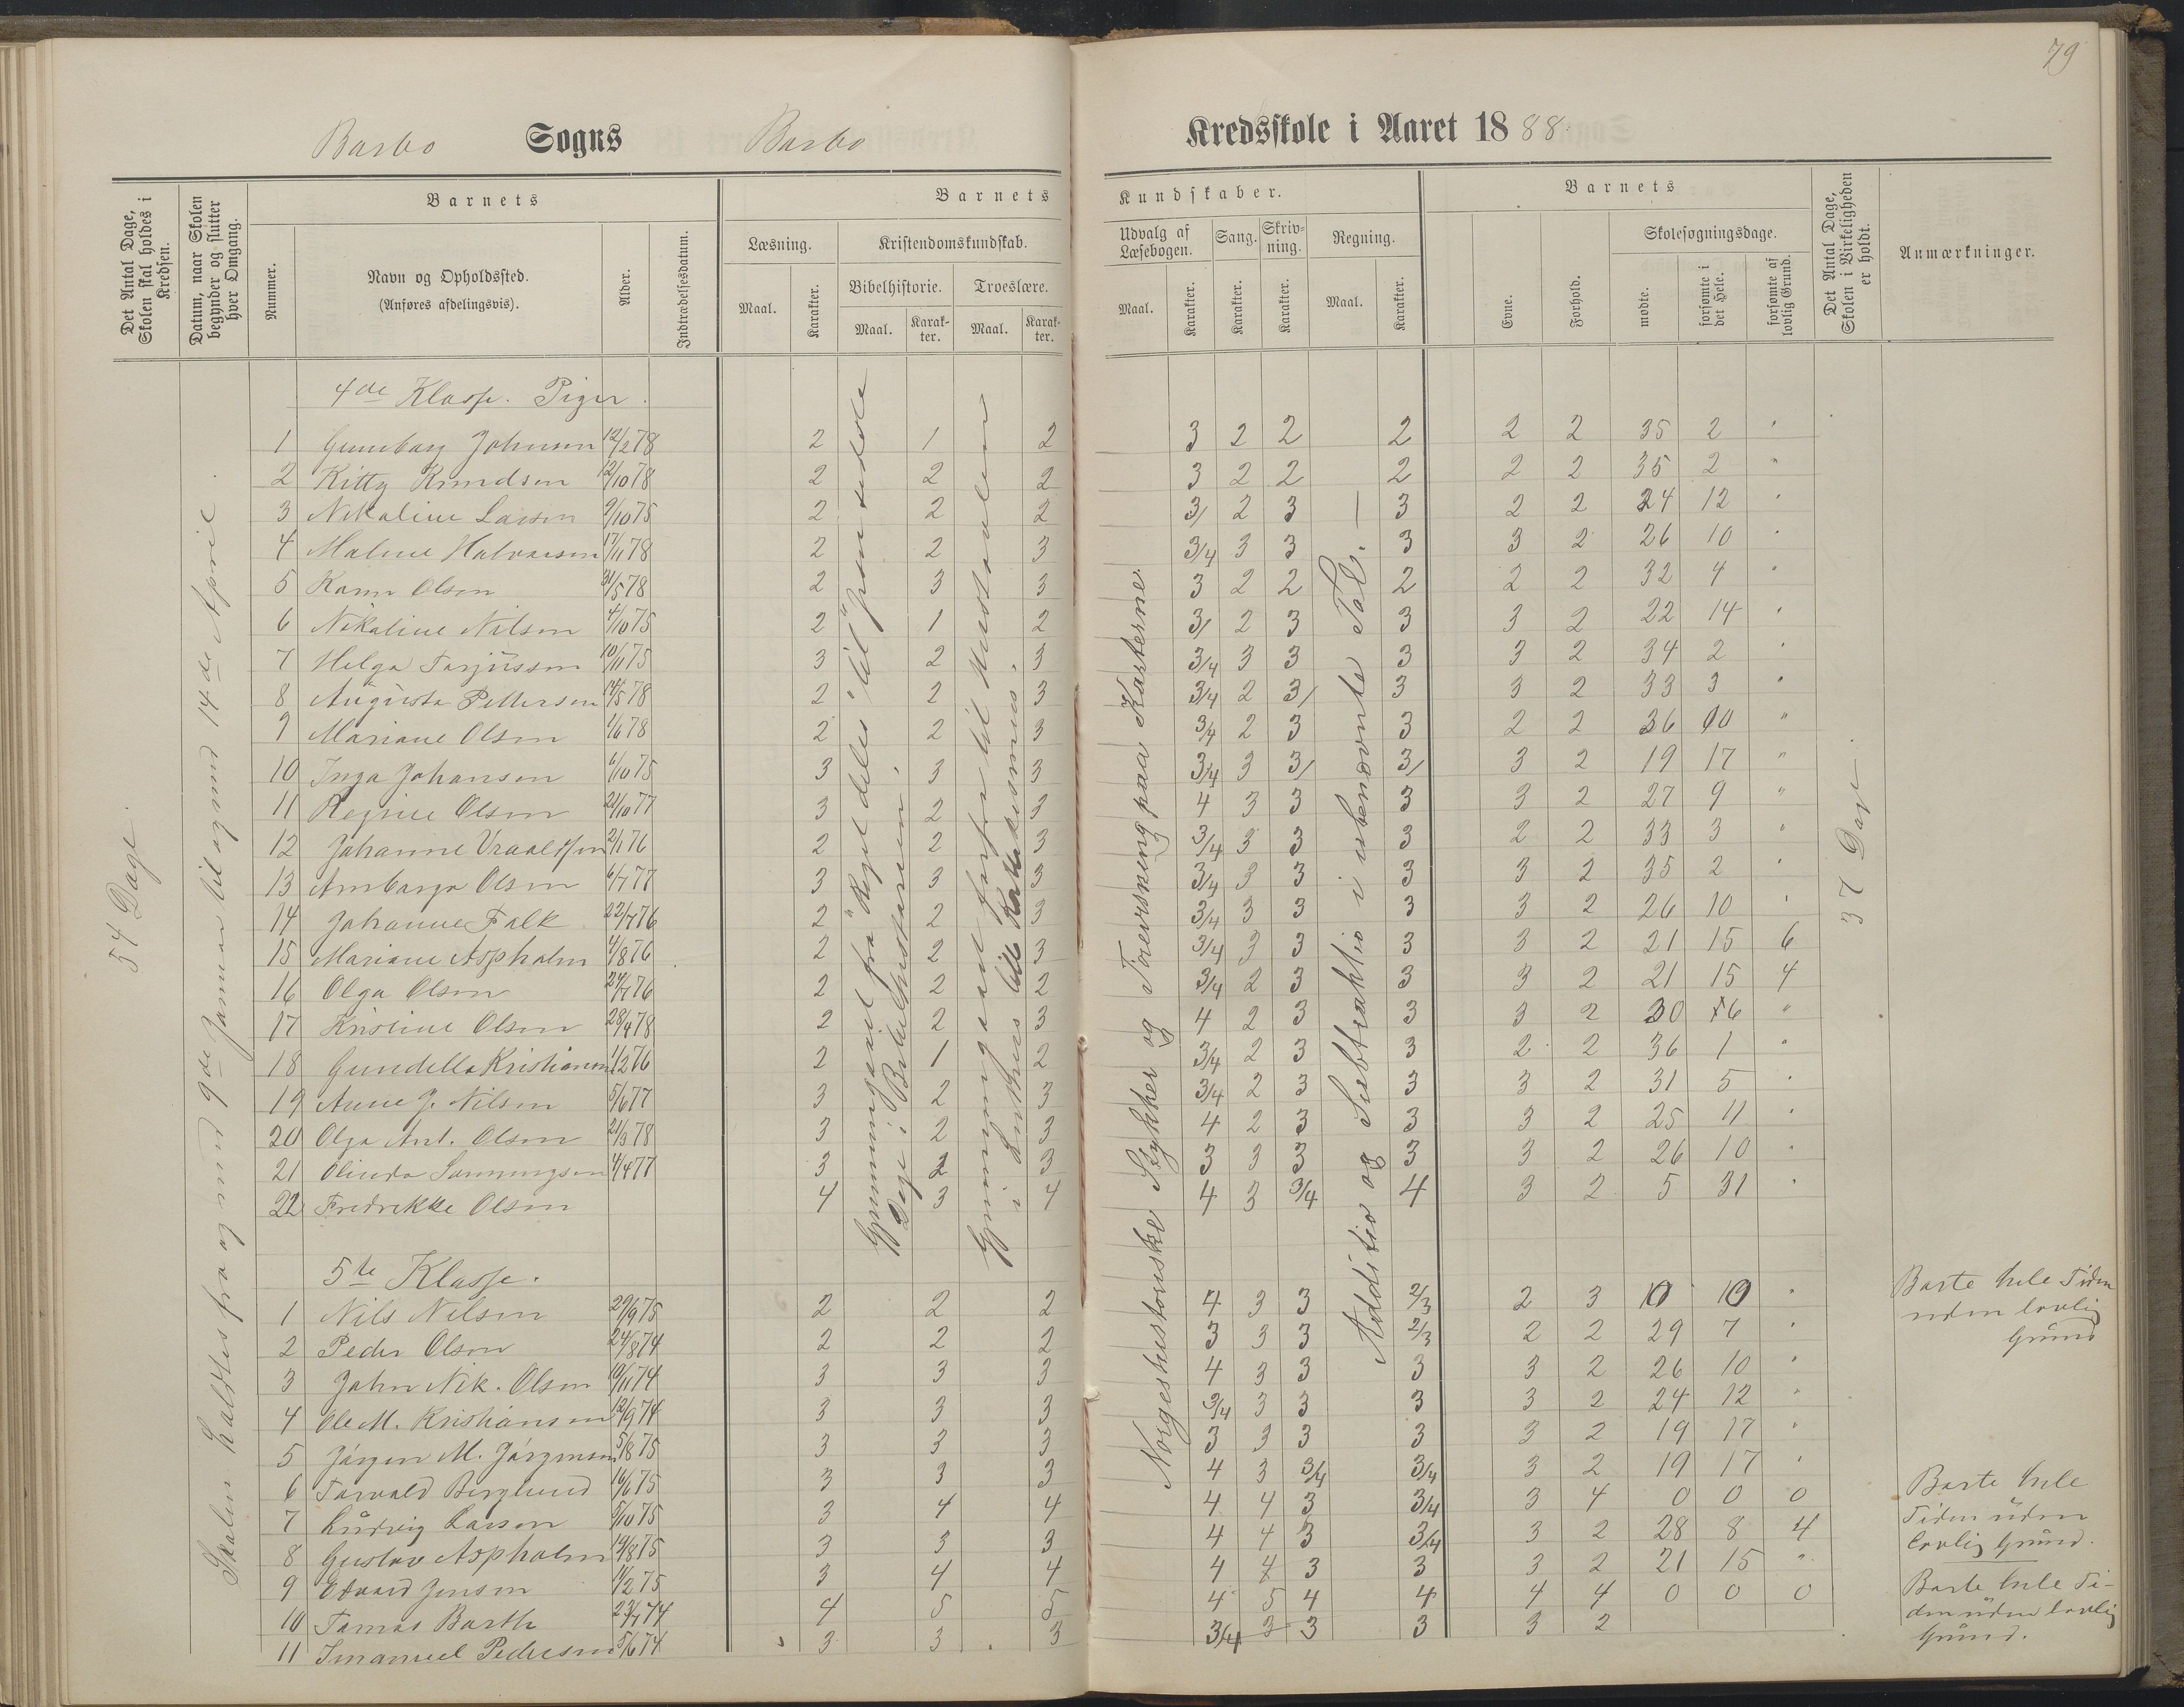 79
Barbo Sogns Barbo Kredsskole i Aaret 1888.
Det Antal Dage, Skolen skal holdes i Kredsen.
Datum, naar Skolen begynder og slutter hver Omgang.
Barnets
Nummer.
Navn og Opholdssted.
(Anføres afdelingsvis).
Alder.
Indtrædelsesdatum.
Barnets Kundskaber.
Læsning.
Maal.
Karakter.
Kristendomskundskab.
Bibelhistorie.
Maal.
Karakter.
Troeslære.
Maal.
Karakter.
Udvalg af Læsebogen.
Maal.
Karakter.
Sang.
Karakter.
Skrivning.
Karakter.
Regning.
Maal.
Karakter.
Barnets
Evne.
Forhold.
Skolesøgningsdage.
mødte.
forsømte i det Hele.
forsømte af lovlig Grund.
Det Antal Dage, Skolen i Virkeligheden er holdt.
Anmærkninger.
54 Dage.
Skolen holdtes fra og med 9de Januar til og med 14de April.
Gjennemgaaet fra "Roget deles" til
Dage i Bibelhistorien.
Gjennemgaaet forfra til
i Luthers lille Katekismus.
Norgeshistoriske Stykker og Toevsking paa Karterne.
Additio og Subtraktio i ubenævnte Tal. —
37 Dage.
4de Klasse. Piger.
1 Gunnborg Johnsen 12/2 78 2 1 2 3 2 2 2 2 2 35 2 "
2 Kitty Knudsen 12/10 78 2 2 2 3 2 2 2 2 2 35 2 "
3 Nikoline Larsen 9/10 75 2 2 2 3/ 2 3 3 2 2 24 12 "
4 Maline Halvorsen 17/11 78 2 2 3 3/4 3 3 3 3 2 26 10 "
5 Karen Olsen 31/5 78 2 3 3 3 2 2 2 2 2 32 4 "
6 Nikoline Nilsen 4/10 75 2 1 2 3/ 2 3 3 3 2 22 14 "
7 Helga Torjussen 10/11 75 3 2 3 3/4 3 3 3 3 2 34 2 "
8 Augusta Pettersen 14/5 78 2 2 3 3/4 2 3/ 3 3 2 33 3 "
9 Mariane Olsen 1/6 78 2 2 3 3/4 2 3 3 2 2 36 0 "
10 Inga Johansen 6/10 75 3 3 3 3/4 3 3/ 3/ 3 2 19 17 "
11 Regine Olsen 21/10 77 3 2 3 4 3 3 3 3 2 27 9 "
12 Johanne Vraalsen 2/1 76 2 2 3 3/4 3 3 3 2 2 33 3 "
13 Annbarga Olsen 6/7 77 3 3 3 3/4 3 3 3 3 2 35 2 "
14 Johanne Falk 22/7 76 2 2 3 3/4 3 3 3 3 2 26 10 "
15 Mariane Aspholm 4/8 76 2 2 3 3/4 3 3 3 3 2 21 15 6
16 Olga Olsen 24/7 76 2 2 2 3/4 2 3 3 3 2 21 15 4
17 Kristine Olsen 28/4 78 2 2 3 4 2 3 3 3 2 30 6 "
18 Gundella Kristiansen 1/2 76 2 1 2 3/4 2 3 3 2 2 36 1 "
19 Anne J. Nilsen 5/6 77 3 2 3 3/4 2 3 3 3 2 31 5 "
20 Olga Ant. Olsen 21/3 78 3 2 3 4 2 3 3 3 2 25 11 "
21 Olinda Sønningsen 4/4 77 3 2 3 3 3 3 3 3 2 26 10 "
22 Fredrikke Olsen 4 3 4 4 3 3/4 4 3 2 5 31 "
5te Klasse.
1 Nils Nilsen 29/9 75 2 2 2 4 3 3 2/3 2 3 10 10 "
2 Peder Olsen 24/8 74 2 2 2 3 3 3 2/3 2 2 29 7 "
3 John Nik. Olsen 10/11 74 3 3 3 4 3 3 3 3 2 26 10 "
4 Ole M. Kristiansen 12/9 74 3 3 3 3/4 3 3 3 3 2 24 12 "
5 Jørgen M. Jørgensen 5/8 75 3 3 3 3 3 3 3 3 2 19 17 "
6 Torvald Berglund 16/6 75 3 3 3 4 3 3/4 3/4 3 2 19 17 "
7 Ludvig Larsen 5/10 75 3 4 4 4 4 3 3/4 3 4 0 0 0
8 Gustav Aspholm 19/8 75 3 3 3 4 4 3 3/4 3 2 28 8 4
9 Edvard Jensen 11/2 75 3 4 4 4 4 3 3 3 2 21 15 "
10 Tomas Barth 23/7 74 4 5 5 4 5 4 4 4 4 0 0 0
11 Imanuel Pedersen 5/6 74 3 3 3 3/4 3 3 3 3 2
Borte hele Tiden
uden lovlig
Grund
Borte hele
Tiden uden
lovlig Grund.
Borte hele Ti-
den uden lovlig
Grund.